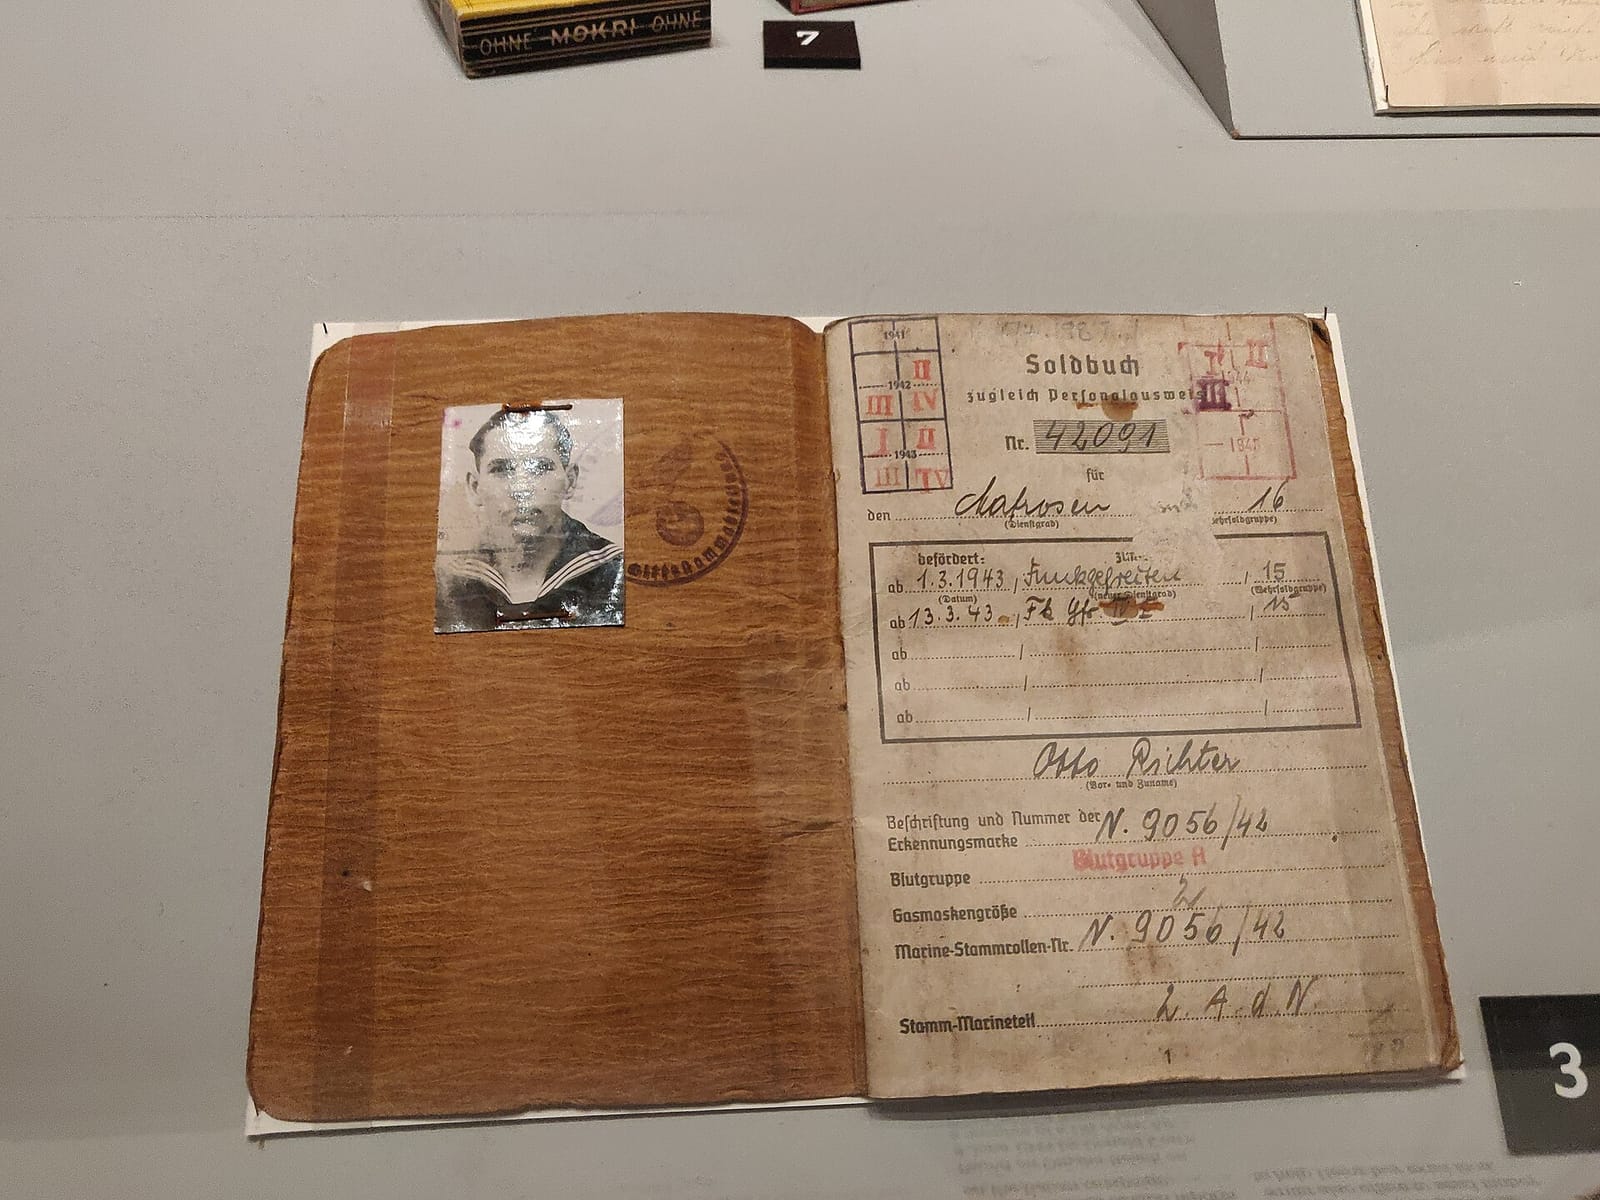 OHNE MOKRI OHNE
7
1941
II
1942
III IV
I II
1943
III IV
Soldbuch
zugleich Personalausweis
I II
1944
III
1945
Nr. 42091
für
den Matrosen 16
(Dienstgrad)
befördert:
ab 1.3.1943, Funkgefreiten / 15
(Datum) (neuer Dienstgrad) (Wehrsoldgruppe)
ab 13.3.43., Fk Gfr / 15
ab / /
ab / /
ab / /
Otto Richter
(Vor- und Zuname)
Beschriftung und Nummer der
Erkennungsmarke N. 9056/42
Blutgruppe Blutgruppe A
Gasmaskengröße 2
Marine-Stammrollen-Nr. N. 9056/42
Stamm-Marineteil 2. A. d. N.
1
3